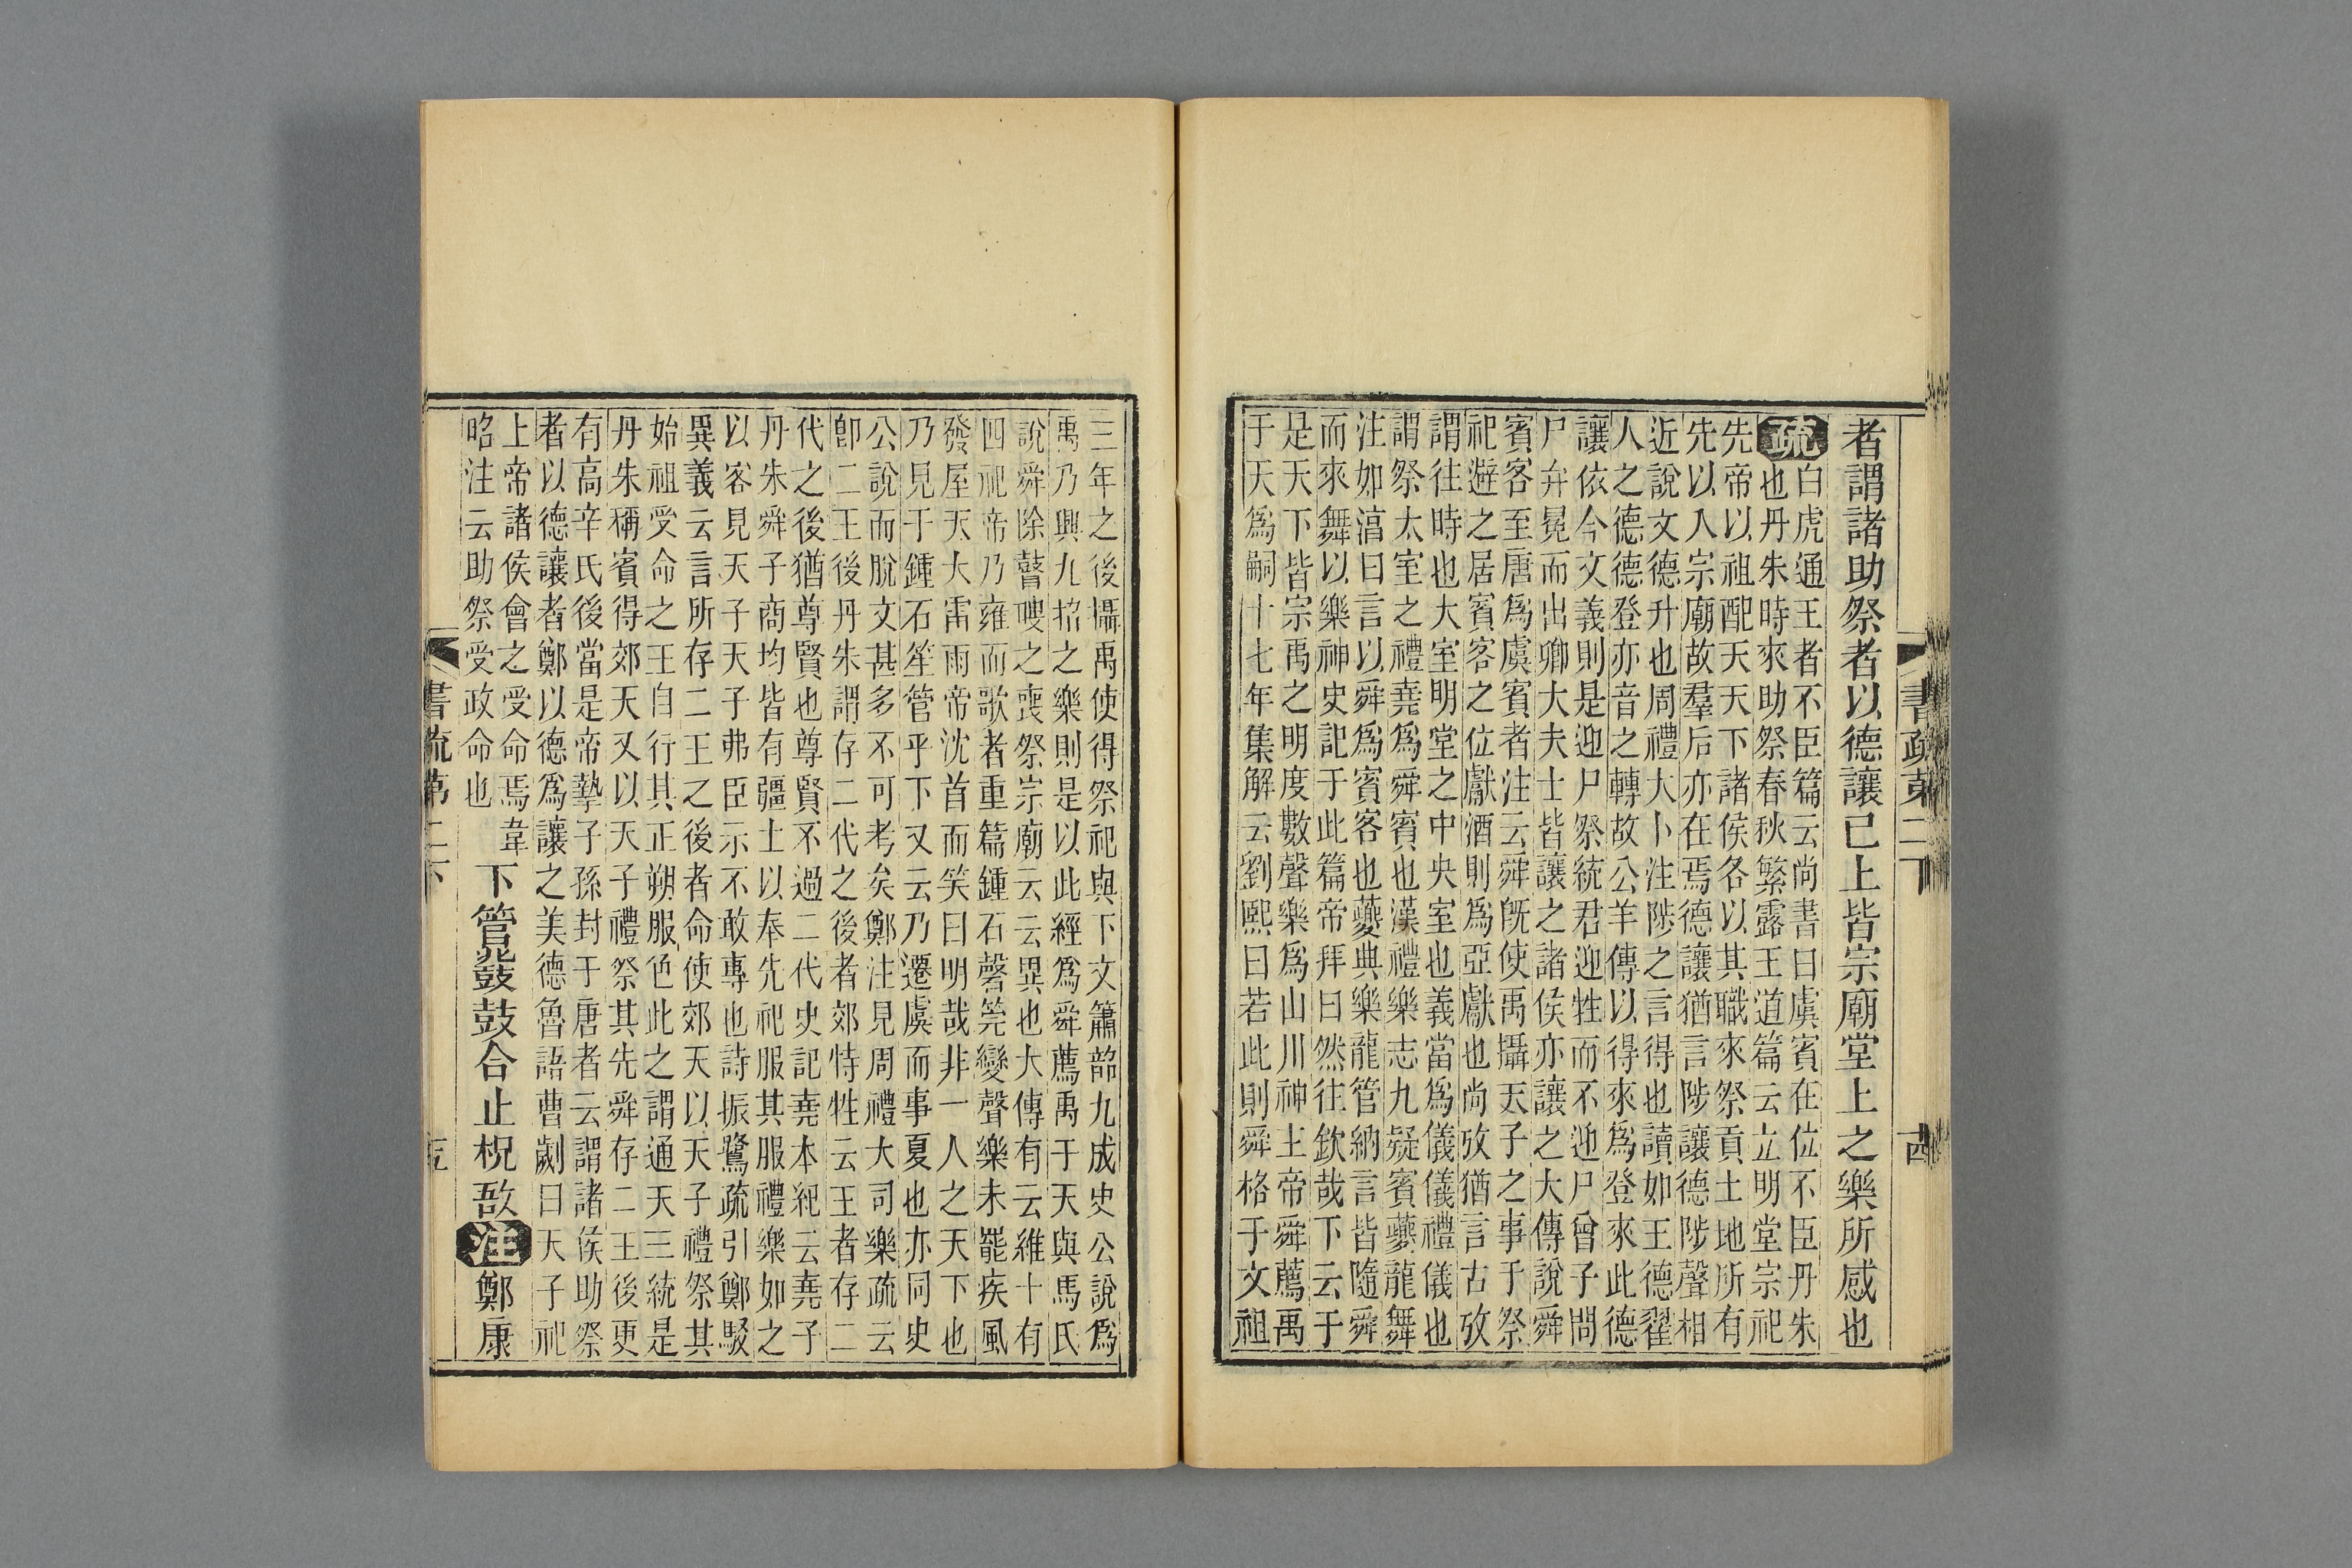 書疏第二下
者謂諸助祭者以德讓已上皆宗廟堂上之樂所感也
疏白虎通王者不臣篇云尚書曰虞賓在位不臣丹朱
也丹朱時來助祭春秋繁露王道篇云立明堂宗祀
先帝以祖配天天下諸侯各以其職來祭貢土地所有
先以入宗廟故羣后亦在焉德讓猶言陟讓德陟聲相
近說文德升也周禮大卜注陟之言得也讀如王德翟
人之德德登亦音之轉故公羊傳以得來爲登來此德
讓依今文義則是迎尸祭統君迎牲而不迎尸曾子問
尸弁冕而出卿大夫士皆讓之諸侯亦讓之大傳說舜
賓客至唐爲虞賓者注云舜旣使禹攝天子之事于祭
祀避之居賓客之位獻酒則爲亞獻也尚攷猶言古攷
謂往時也大室明堂之中央室也義當爲儀儀禮儀也
謂祭太室之禮堯爲舜賓也漢禮樂志九疑賓夔龍舞
注如湻曰言以舜爲賓客也夔典樂龍管納言皆隨舜
而來舞以樂神史記于此篇帝拜曰然往欽哉下云于
是天下皆宗禹之明度數聲樂爲山川神主帝舜薦禹
于天爲嗣十七年集解云劉熙曰若此則舜格于文祖
三年之後攝禹使得祭祀與下文簫韶九成史公說爲
禹乃興九招之樂則是以此經爲舜薦禹于天與馬氏
說舜除瞽瞍之喪祭宗廟云云異也大傳有云維十有
四祀帝乃雍而歌者重篇鍾石磬筦變聲樂未罷疾風
發屋天大雷雨帝沈首而笑曰明哉非一人之天下也
乃見于鍾石笙管乎下又云乃遷虞而事夏也亦同史
公說而脫文甚多不可考矣鄭注見周禮大司樂疏云
卽二王後丹朱謂存二代之後者郊特牲云王者存二
代之後猶尊賢也尊賢不過二代史記堯本紀云堯子
丹朱舜子商均皆有疆土以奉先祀服其服禮樂如之
以客見天子天子弗臣示不敢專也詩振鷺疏引鄭駁
異義云言所存二王之後者命使郊天以天子禮祭其
始祖受命之王自行其正朔服色此之謂通天三統是
丹朱稱賓得郊天又以天子禮祭其先舜存二王後更
有高辛氏後當是帝摯子孫封于唐者云謂諸侯助祭
者以德讓者鄭以德爲讓之美德魯語曹劌曰天子祀
上帝諸侯會之受命焉韋
昭注云助祭受政命也
下管鼗鼓合止柷敔注鄭康
書疏第二下